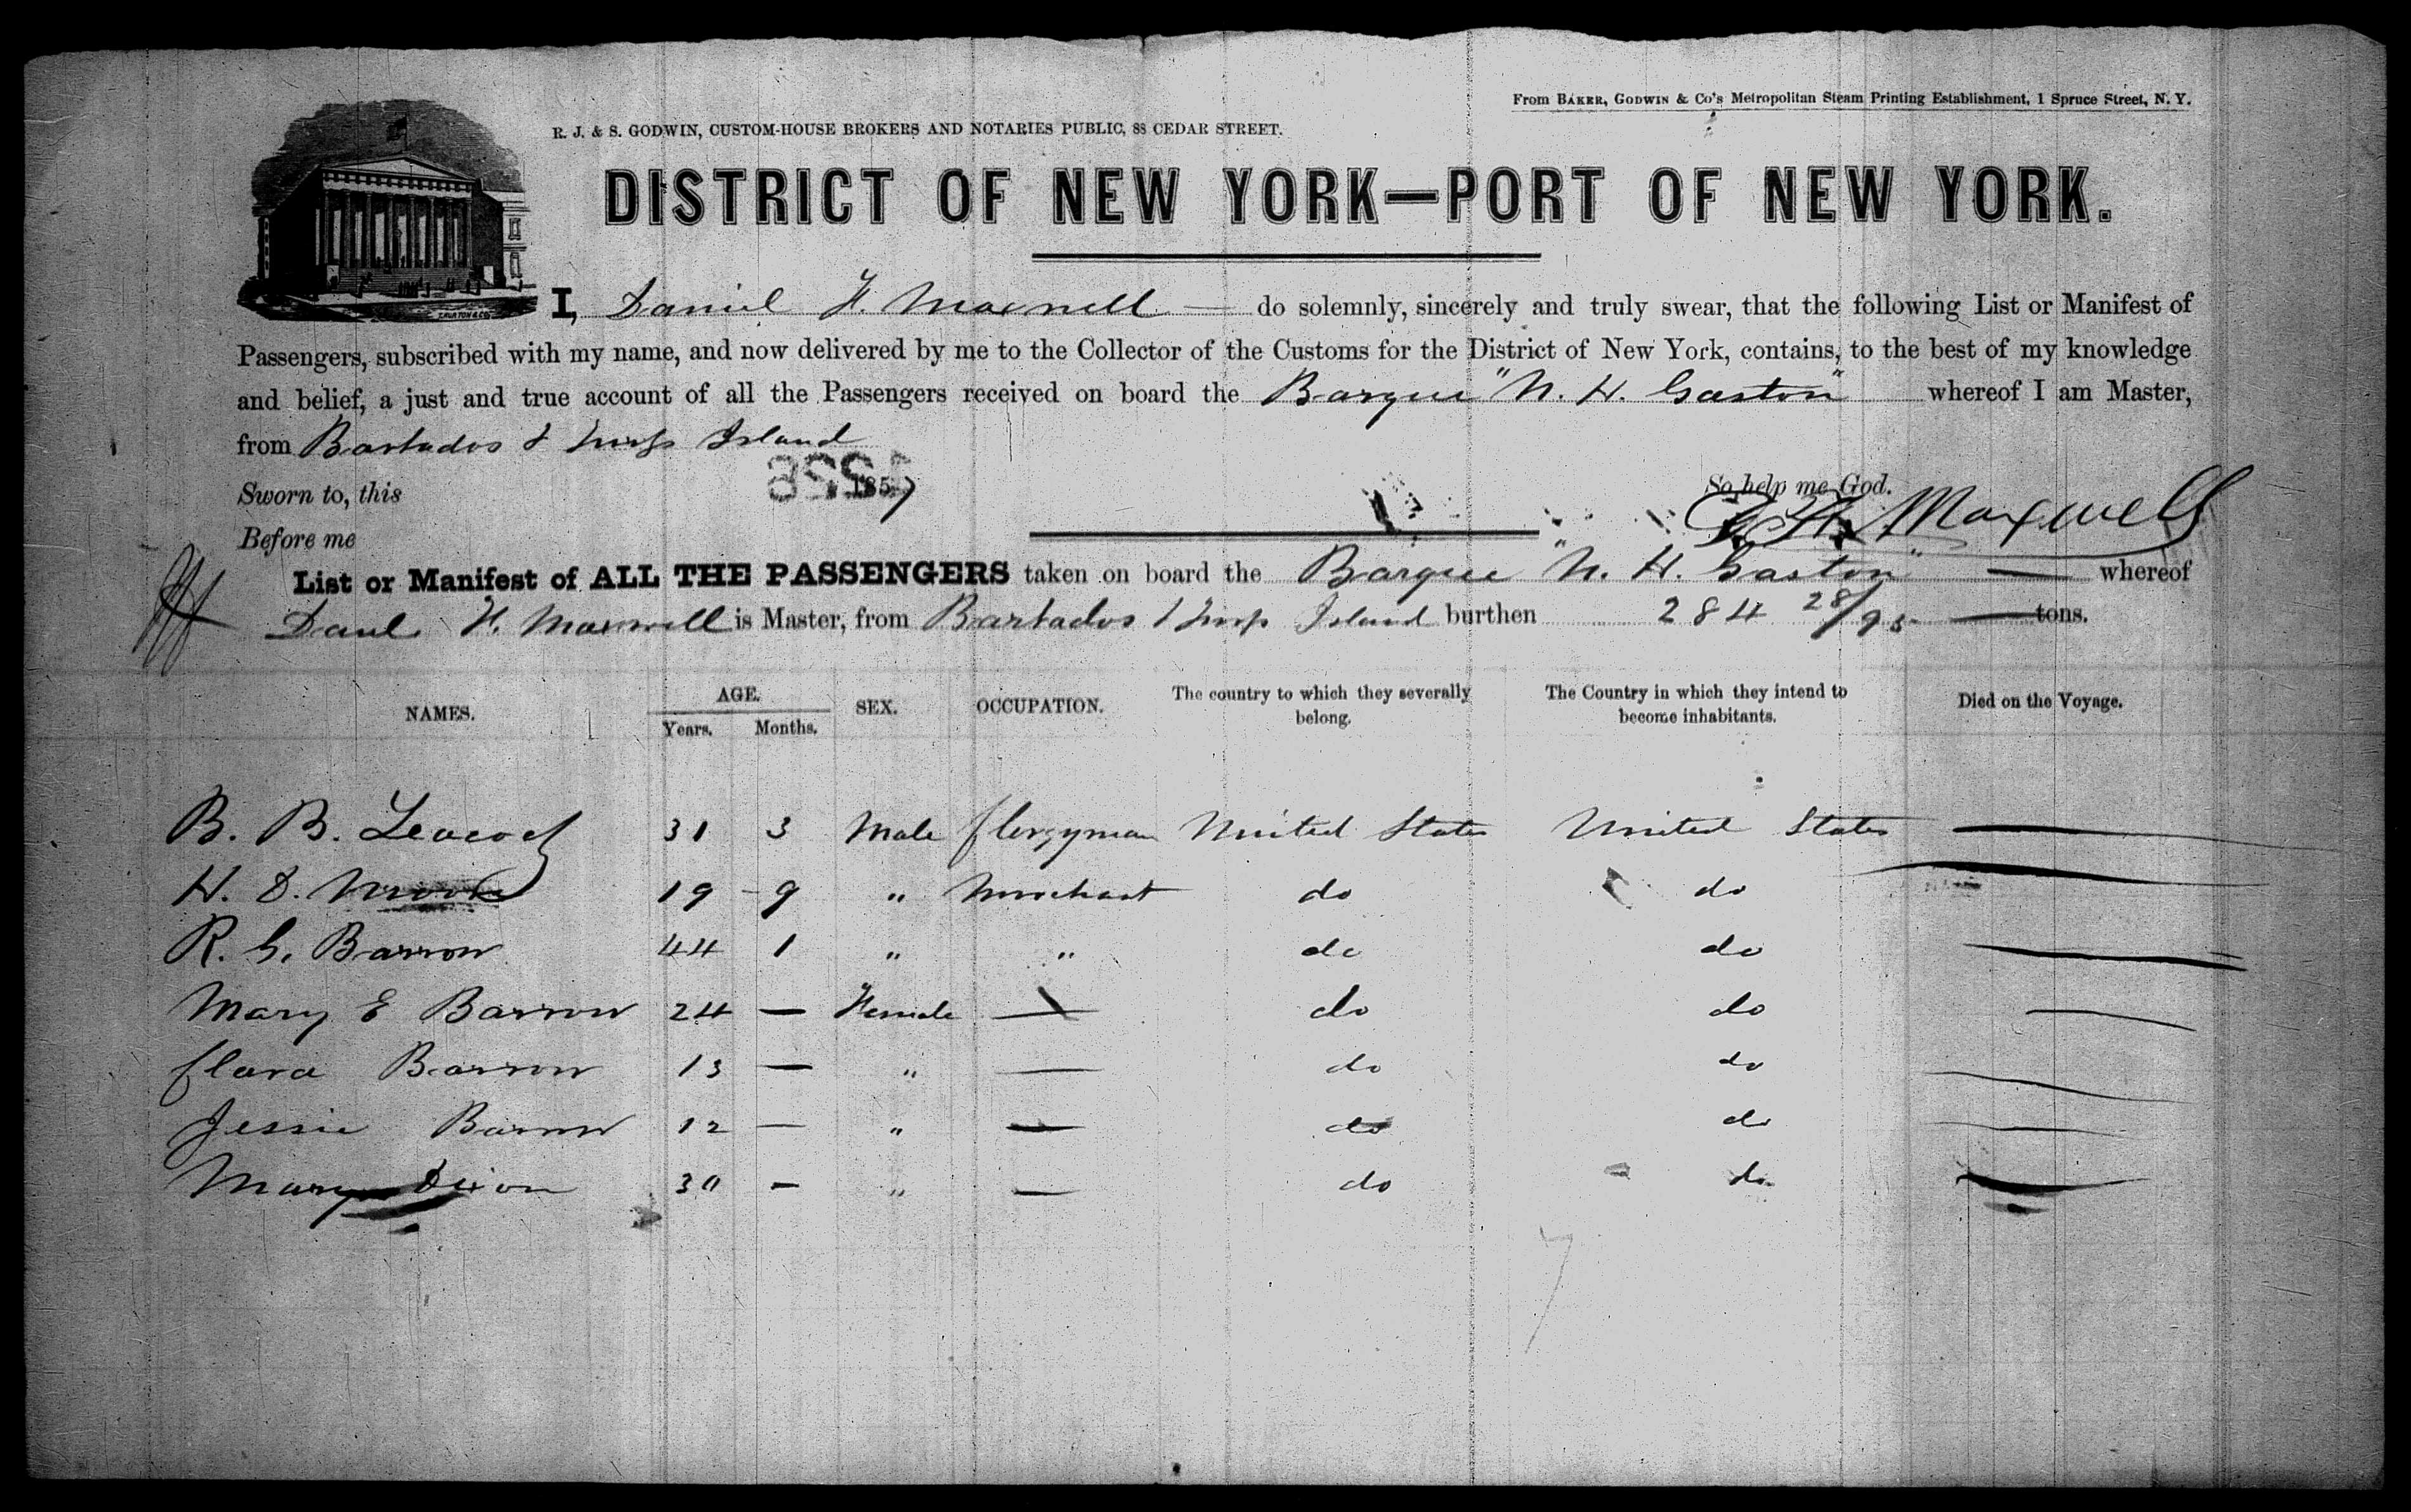 From BAKER, GODWIN & Co's Metropolitan Steam Printing Establishment, 1 Spruce Street, N. Y.
R. J. & S. GODWIN, CUSTOM-HOUSE BROKERS AND NOTARIES PUBLIC, 88 CEDAR STREET.
DISTRICT OF NEW YORK—PORT OF NEW YORK.
I, Daniel H. Maxwell — do solemnly, sincerely and truly swear, that the following List or Manifest of
Passengers, subscribed with my name, and now delivered by me to the Collector of the Customs for the District of New York, contains, to the best of my knowledge
and belief, a just and true account of all the Passengers received on board the Barque "N. H. Gaston" whereof I am Master,
from Barbados & Turks Island
Sworn to, this 1857 So help me God.
D. H. Maxwell
Before me
List or Manifest of ALL THE PASSENGERS taken on board the Barque "N. H. Gaston" — whereof
Danl. H. Maxwell is Master, from Barbados / Turks Island burthen 284 28/95 — tons.
NAMES. AGE. Years. Months. SEX. OCCUPATION. The country to which they severally belong. The Country in which they intend to become inhabitants. Died on the Voyage.
B. B. Leacock 31 3 Male Clergyman United States United States —
H. D. 19 9 " Merchant do do —
R. G. Barrow 44 1 " " do do —
Mary E Barrow 24 — Female — do do —
Clara Barrow 13 — " — do do —
Jessie Barrow 12 — " — do do —
Mary Dixon 30 — " — do do —
7